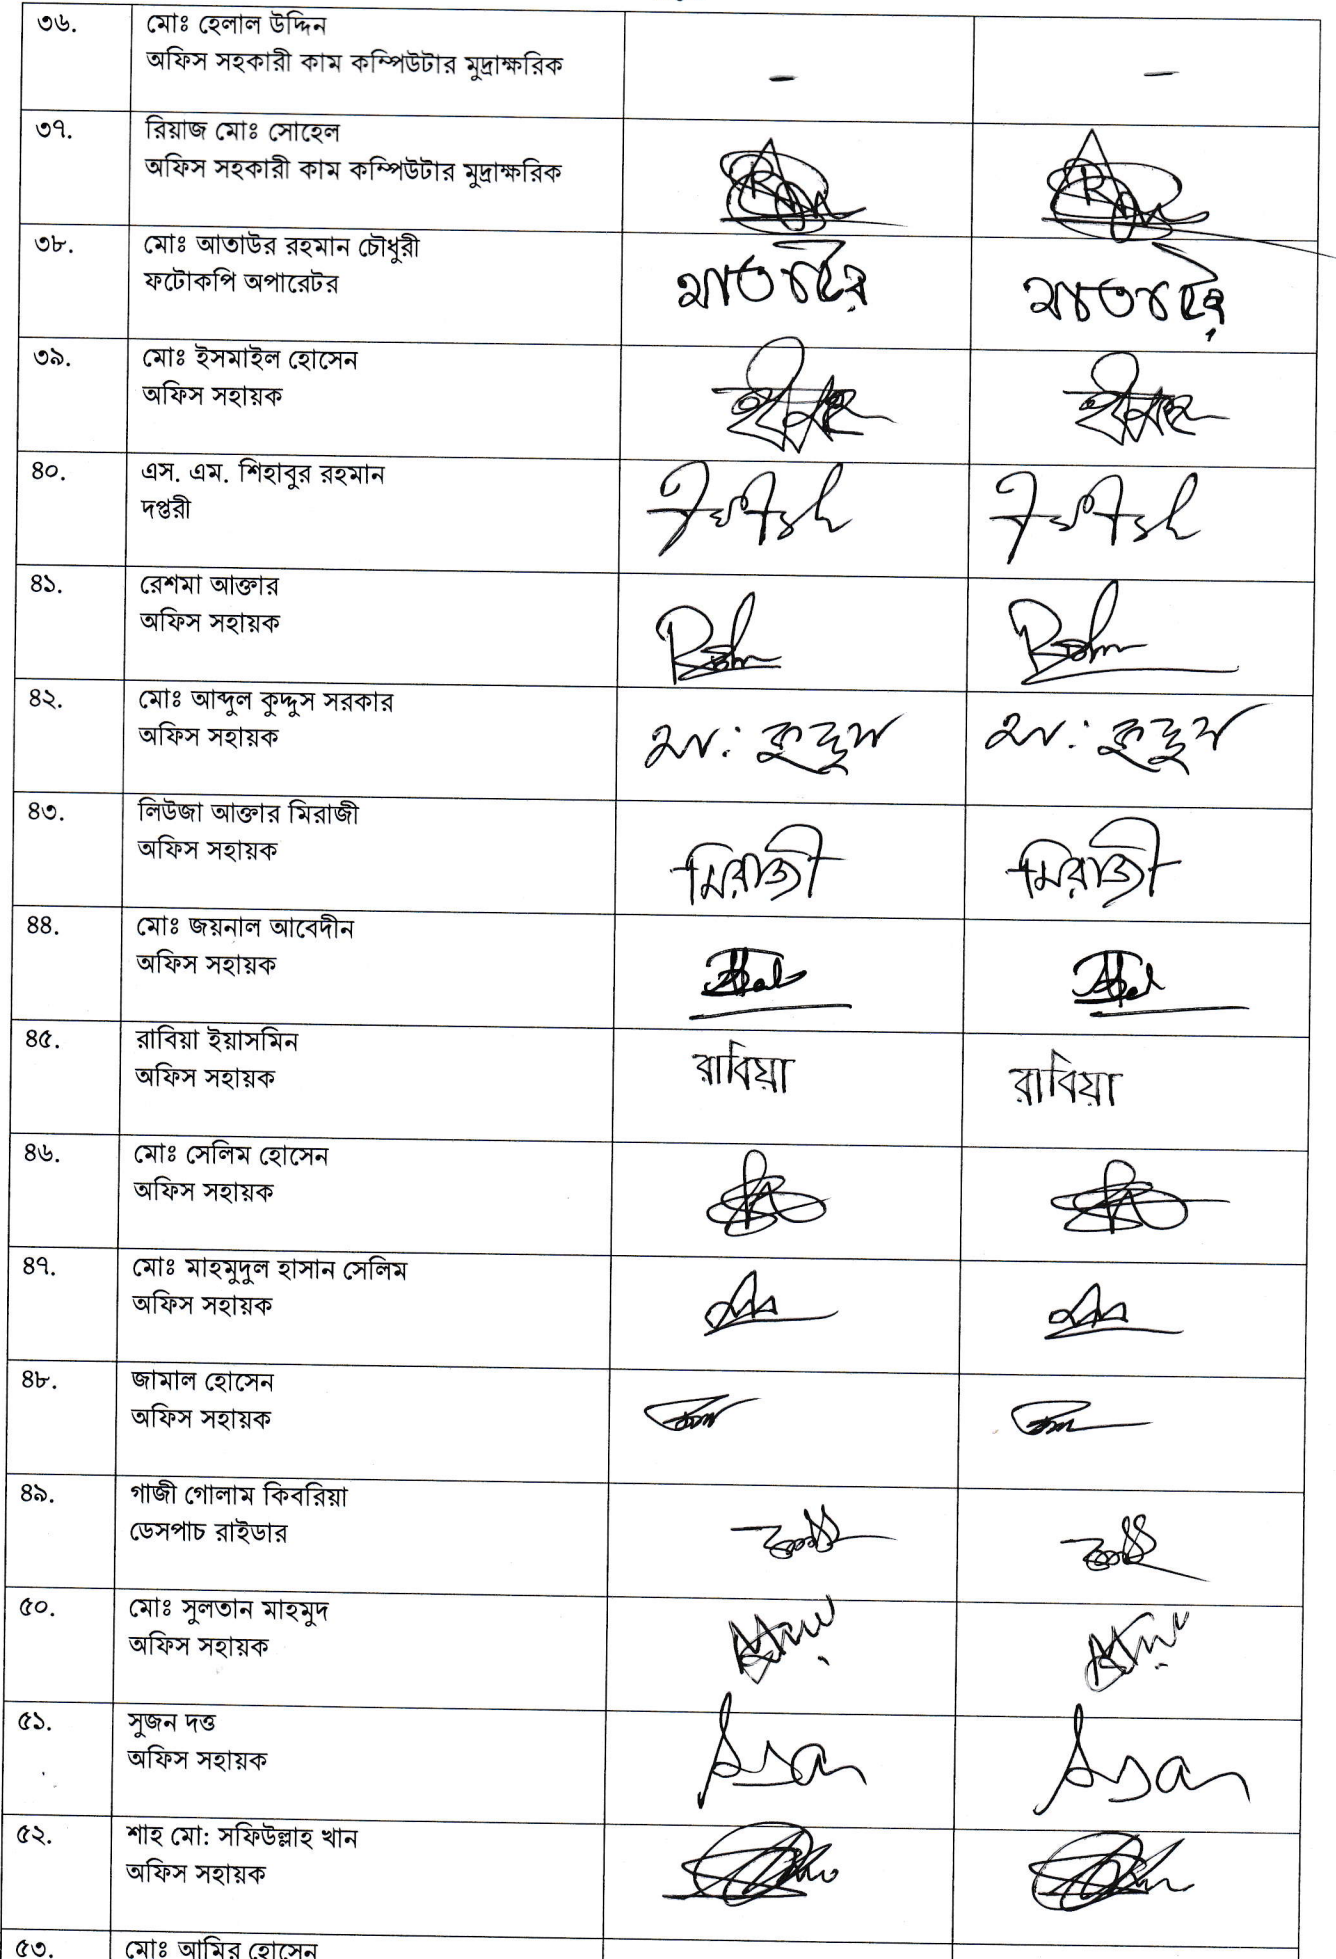 ৩৬.
মোঃ হেলাল উদ্দিন
অফিস সহকারী কাম কম্পিউটার মুদ্রাক্ষরিক
-
-
৩৭.
রিয়াজ মোঃ সোহেল
অফিস সহকারী কাম কম্পিউটার মুদ্রাক্ষরিক
৩৮.
মোঃ আতাউর রহমান চৌধুরী
ফটোকপি অপারেটর
৩৯.
মোঃ ইসমাইল হোসেন
অফিস সহায়ক
৪০.
এস. এম. শিহাবুর রহমান
দপ্তরী
৪১.
রেশমা আক্তার
অফিস সহায়ক
৪২.
মোঃ আব্দুল কুদ্দুস সরকার
অফিস সহায়ক
কুদ্দুস
কুদ্দুস
৪৩.
লিউজা আক্তার মিরাজী
অফিস সহায়ক
মিরাজী
মিরাজী
৪৪.
মোঃ জয়নাল আবেদীন
অফিস সহায়ক
৪৫.
রাবিয়া ইয়াসমিন
অফিস সহায়ক
রাবিয়া
রাবিয়া
৪৬.
মোঃ সেলিম হোসেন
অফিস সহায়ক
৪৭.
মোঃ মাহমুদুল হাসান সেলিম
অফিস সহায়ক
৪৮.
জামাল হোসেন
অফিস সহায়ক
৪৯.
গাজী গোলাম কিবরিয়া
ডেসপাচ রাইডার
৫০.
মোঃ সুলতান মাহমুদ
অফিস সহায়ক
৫১.
সুজন দত্ত
অফিস সহায়ক
৫২.
শাহ মো: সফিউল্লাহ খান
অফিস সহায়ক
৫৩.
মোঃ আমির হোসেন